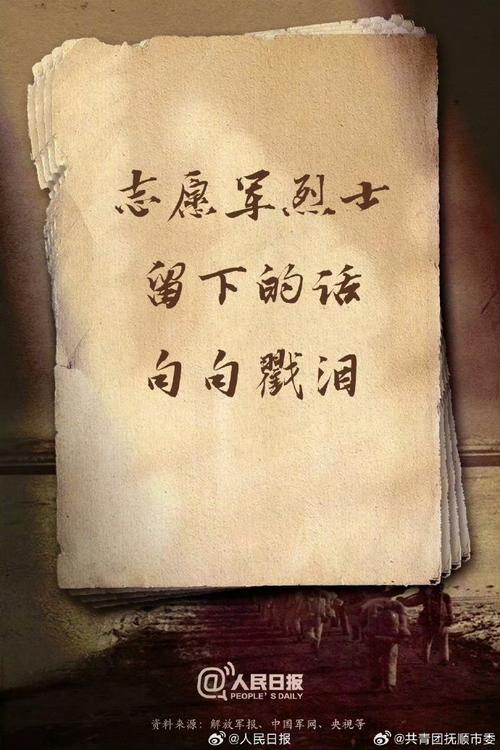 志愿军烈士
留下的话
句句戳泪
@人民日报
PEOPLE'S DAILY
资料来源：解放军报、中国军网、央视等
@人民日报
@共青团抚顺市委